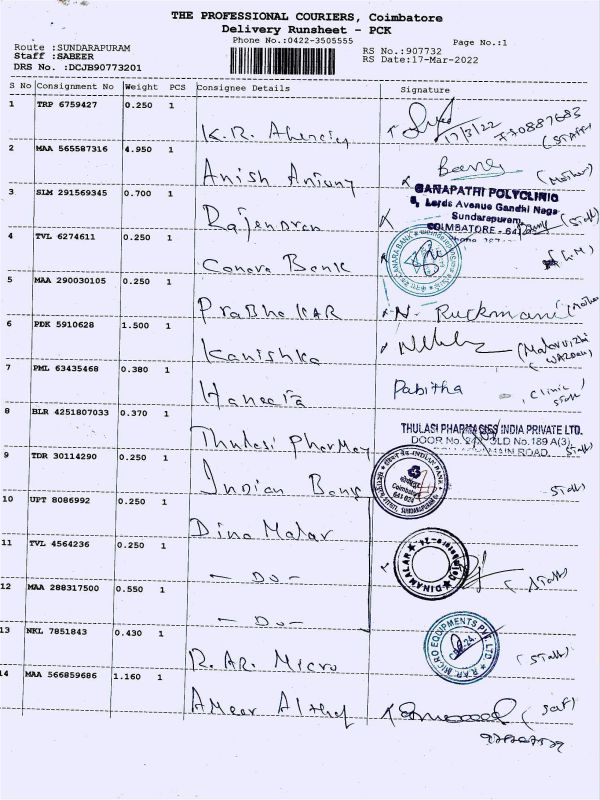 THE PROFESSIONAL COURIERS, Coimbatore
Delivery Runsheet - PCK
Phone No.:0422-3505555
Page No.:1
Route :SUNDARAPURAM
RS No.:907732
Staff :SABEER
RS Date:17-Mar-2022
DRS No. :DCJB90773201
S No Consignment No Weight PCS Consignee Details Signature
1 TRP 6759427 0.250 1
K.R. 17/3/22 (STAFF)
2 MAA 565587316 4.950 1
Anish Antony (Mother)
3 SLM 291569345 0.700 1
Rajendran
GANAPATHI POLYCLINIC
Lords Avenue Gandhi Naga
Sundarapuram,
COIMBATORE - (Staff)
4 TVL 6274611 0.250 1
Canara Bank CANARA BANK
5 MAA 290030105 0.250 1
PraBhakAR N. Ruckmani (Mother
6 PDK 5910628 1.500 1
Kanishka
7 PML 63435468 0.380 1
Pabitha Clinic Staff
8 BLR 4251807033 0.370 1
Thulasi Pharmacy
THULASI PHARMACIES INDIA PRIVATE LTD.
DOOR No. OLD No.189 A(3),
MAIN ROAD, Staff
9 TDR 30114290 0.250 1
Indian Bank INDIAN BANK Coimbatore 641 024 SUNDARAPURAM
Staff
10 UPT 8086992 0.250 1
Dina Malar
11 TVL 4564236 0.250 1
- Do - DINAMALAR (Staff)
12 MAA 288317500 0.550 1
- Do -
13 NKL 7851843 0.430 1
R.AR. Micro R.AR. MICRO EQUIPMENTS PVT. LTD (Staff)
14 MAA 566859686 1.160 1
Ameer (Self)